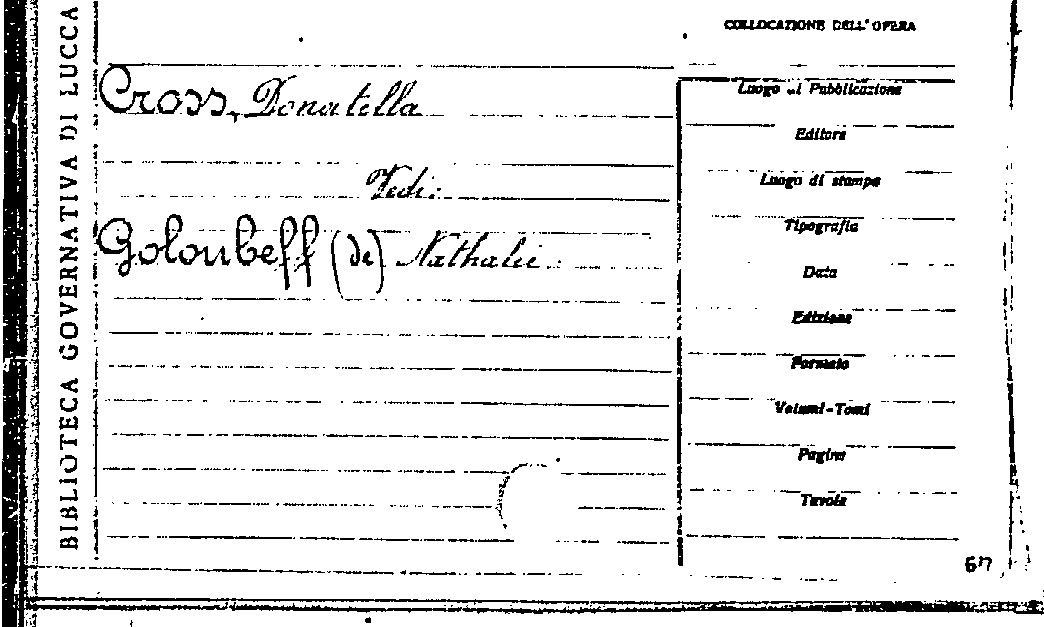 BIBLIOTECA GOVERNATIVA DI LUCCA
COLLOCAZIONE DELL' OPERA
Cross, Donatella
Vedi:
Goloubeff (de) Nathalie
Luogo di Pubblicazione
Editore
Luogo di stampa
Tipografia
Data
Edizione
Formato
Volumi-Tomi
Pagine
Tavole